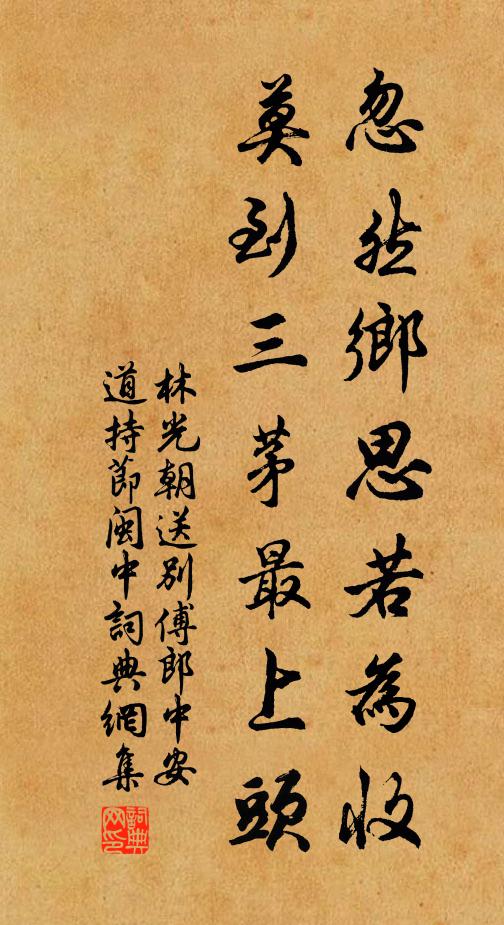 忽然鄉思若為收
莫到三茅最上頭
林光朝送別傅郎中安
道持節閩中詞典網集
詞典网印